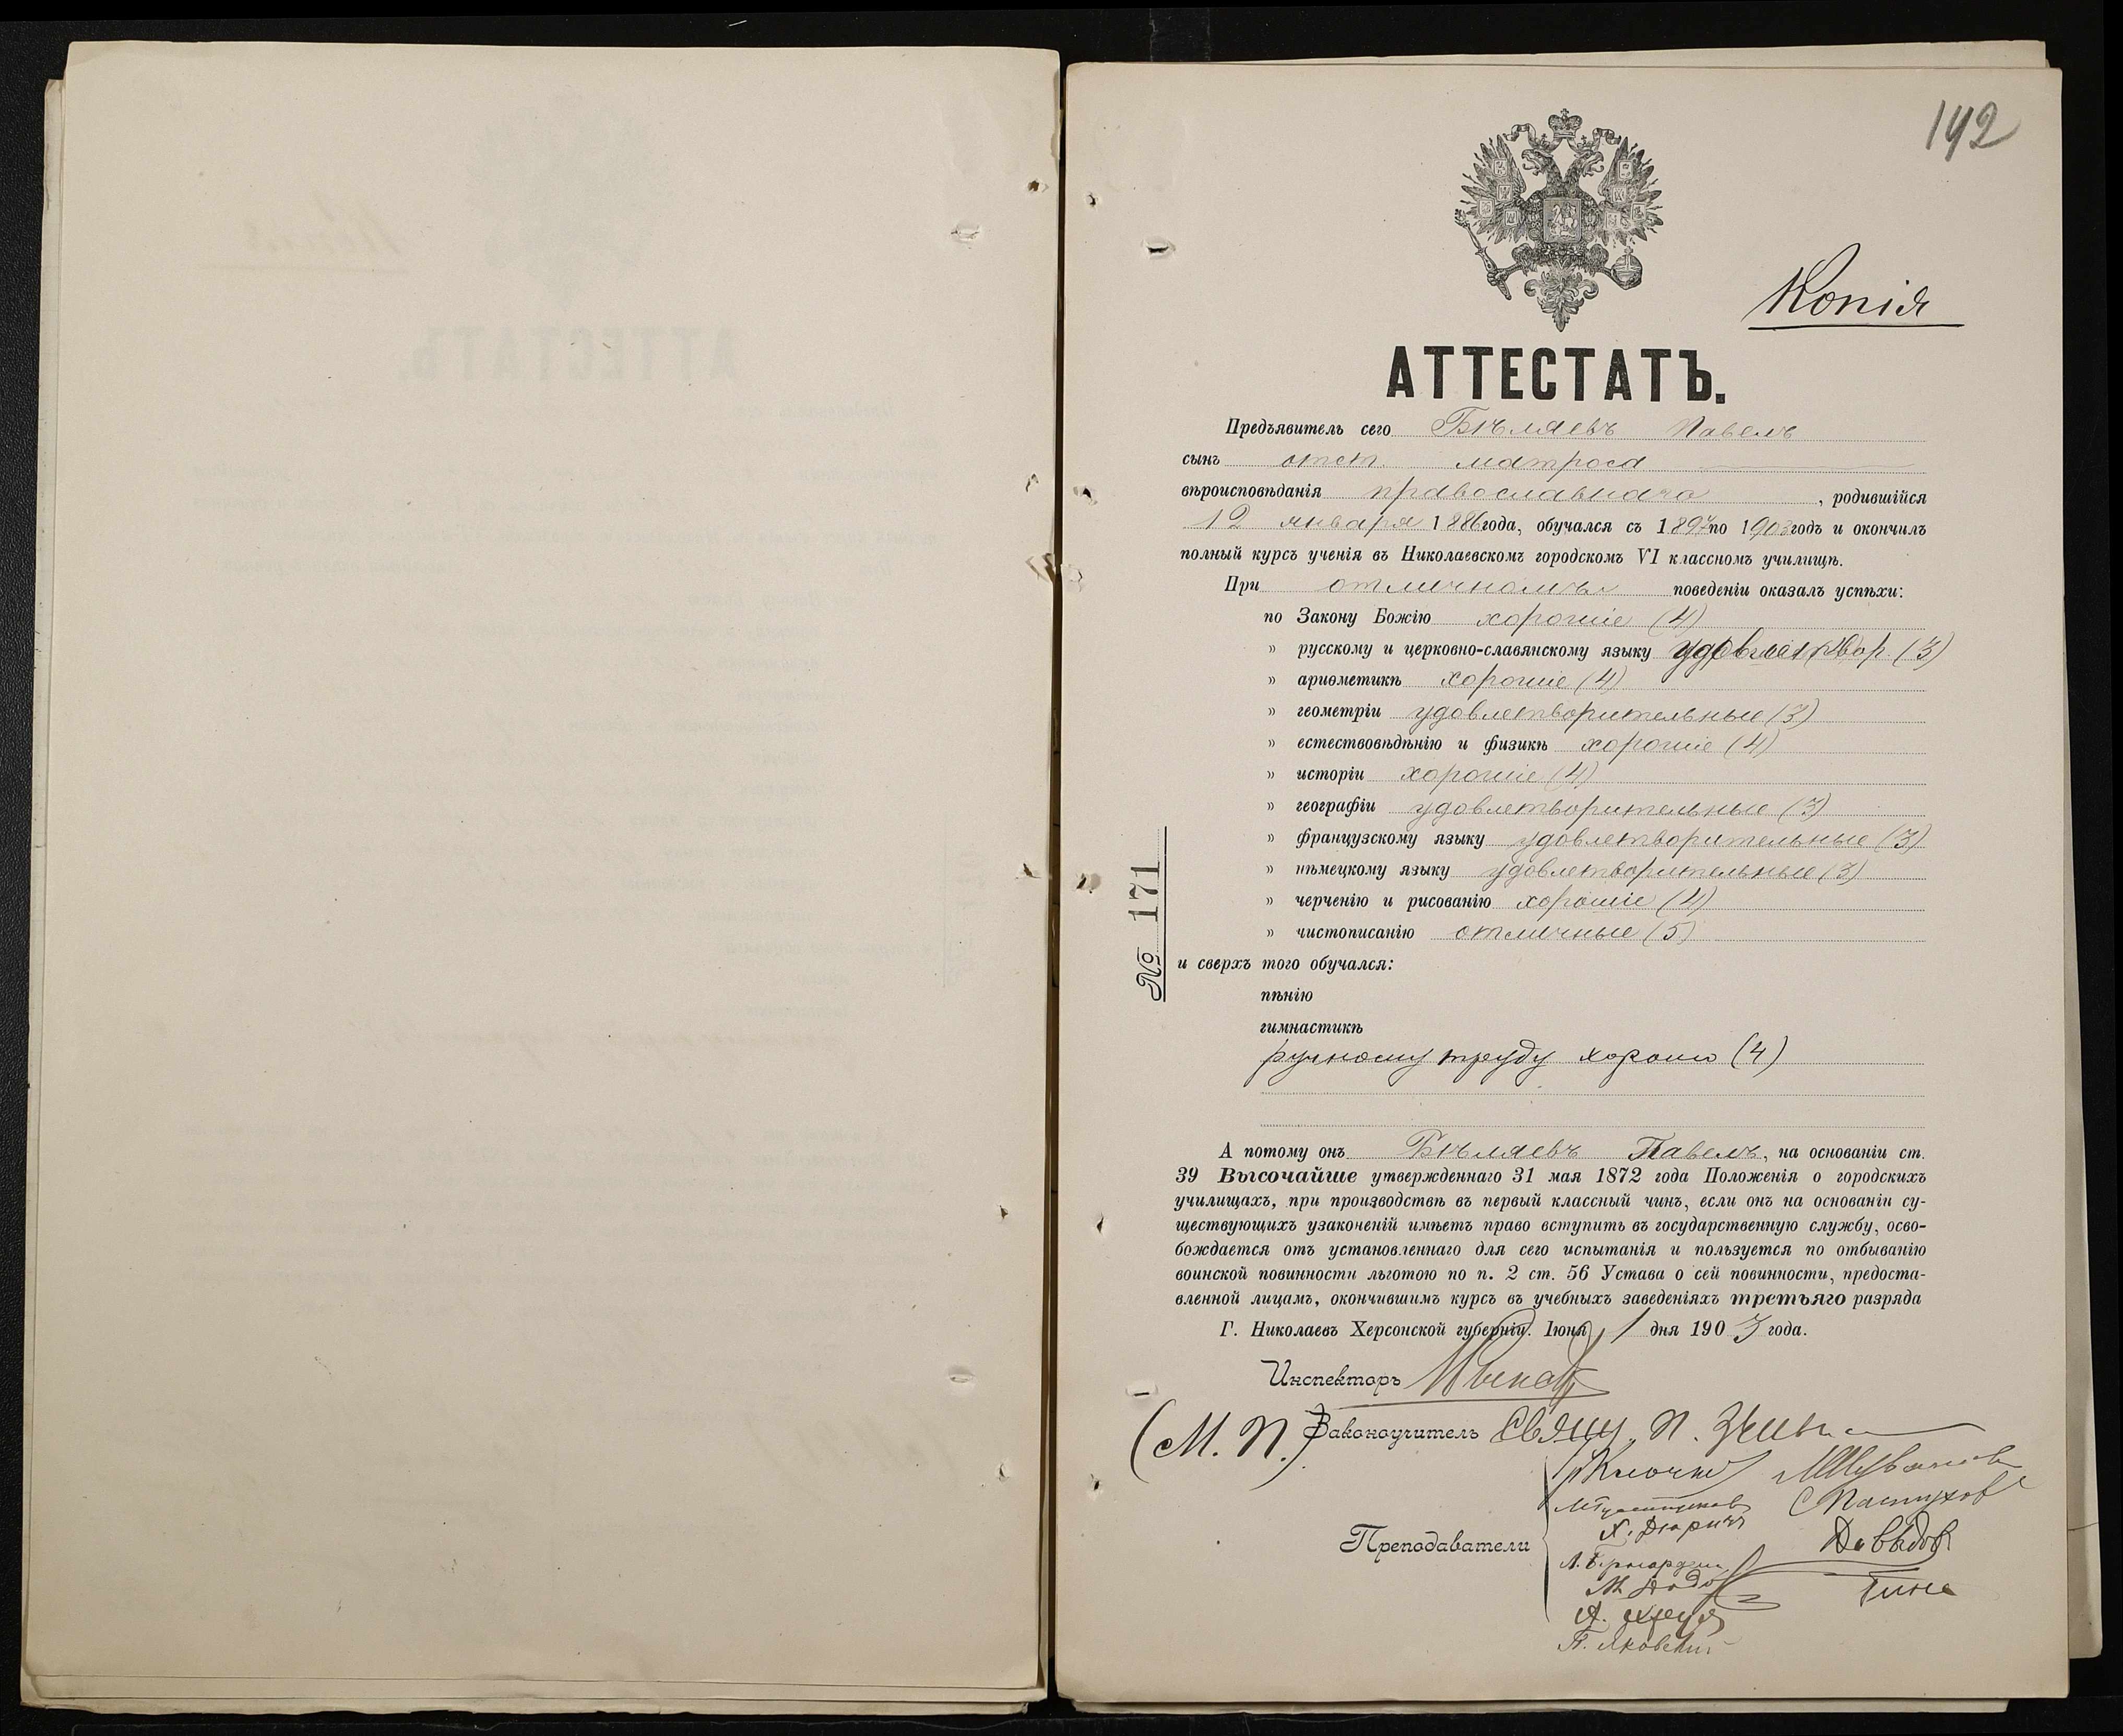 192
Копія
АТТЕСТАТЪ.
Предъявитель сего Бѣляевъ Павелъ
сынъ отст. матроса
вѣроисповѣданія православнаго, родившійся
12 января 1886 года, обучался съ 1897 по 1903 годъ и окончилъ
полный курсъ ученія въ Николаевскомъ городскомъ VI классномъ училищѣ.
При отличномъ поведеніи оказалъ успѣхи:
по Закону Божію хорошіе (4)
» русскому и церковно-славянскому языку удовлетвор. (3)
» ариѳметикѣ хорошіе (4)
» геометріи удовлетворительные (3)
» естествовѣдѣнію и физикѣ хорошіе (4)
» исторіи хорошіе (4)
» географіи удовлетворительные (3)
» французскому языку удовлетворительные (3)
» нѣмецкому языку удовлетворительные (3)
» черченію и рисованію хорошіе (4)
» чистописанію отличные (5)
и сверхъ того обучался:
пѣнію
гимнастикѣ
ручному труду хорошо (4)
№ 171
А потому онъ Бѣляевъ Павелъ, на основаніи ст.
39 Высочайше утвержденнаго 31 мая 1872 года Положенія о городскихъ
училищахъ, при производствѣ въ первый классный чинъ, если онъ на основаніи су-
ществующихъ узаконеній имѣетъ право вступить въ государственную службу, осво-
бождается отъ установленнаго для сего испытанія и пользуется по отбыванію
воинской повинности льготою по п. 2 ст. 56 Устава о сей повинности, предоста-
вленной лицамъ, окончившимъ курсъ въ учебныхъ заведеніяхъ третьяго разряда
Г. Николаевъ Херсонской губерніи. Іюня 1 дня 1903 года.
Инспекторъ
(М. П.) Законоучитель Свящ. П.
Преподаватели
Пастухов
Давыдов